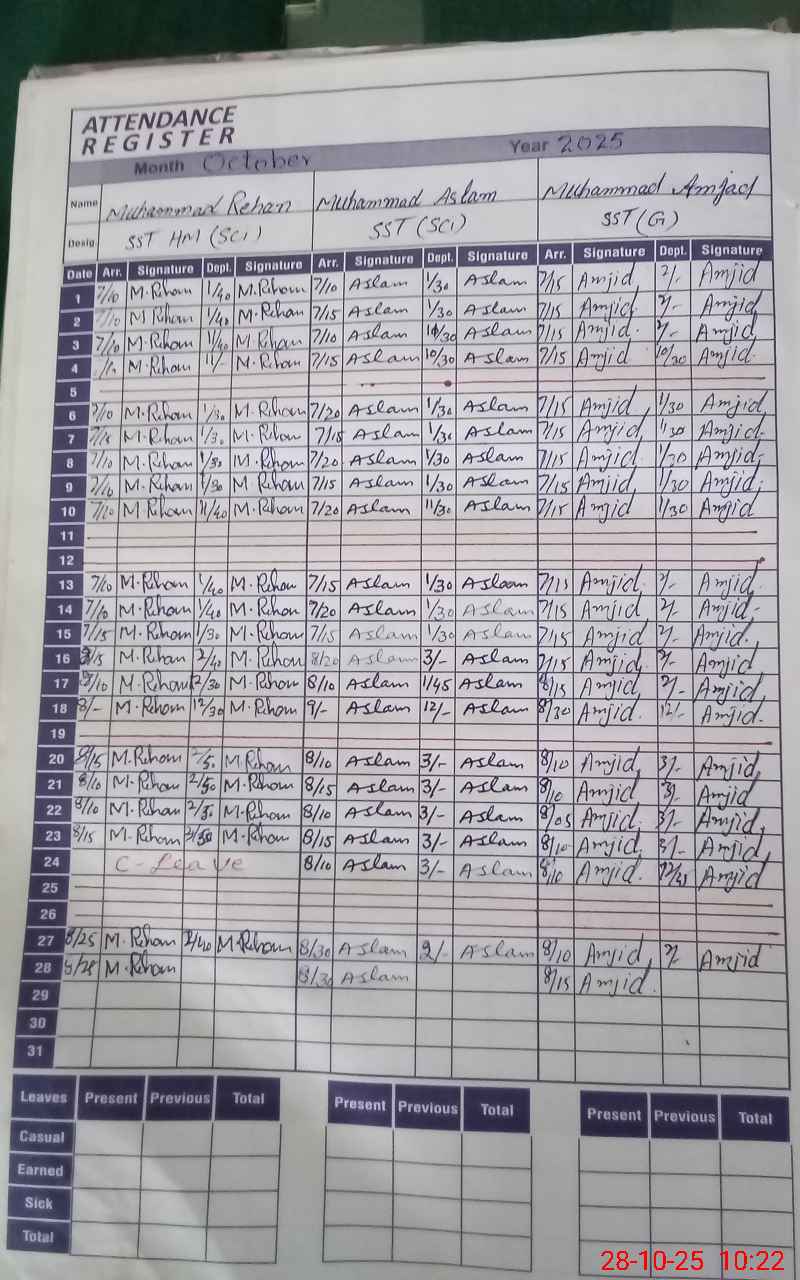 ATTENDANCE
REGISTER
Month October Year 2025
Name Muhammad Rehan Muhammad Aslam Muhammad Amjad
Desig. SST HM (SCI) SST (SCI) SST (G)
Date Arr. Signature Dept. Signature Arr. Signature Dept. Signature Arr. Signature Dept. Signature
1 7/10 M.Rehan 1/40 M.Rehan 7/10 Aslam 1/30 Aslam 7/15 Amjid 2/- Amjid
2 7/10 M.Rehan 1/40 M.Rehan 7/15 Aslam 1/30 Aslam 7/15 Amjid 2/- Amjid
3 7/10 M.Rehan 1/40 M.Rehan 7/10 Aslam Aslam 7/15 Amjid. 2/- Amjid
4 M.Rehan 11/- M.Rehan 7/15 Aslam 10/30 Aslam 7/15 Amjid 10/30 Amjid.
5
6 7/10 M.Rehan 1/30 M.Rehan 7/20 Aslam 1/30 Aslam 7/15 Amjid 1/30 Amjid
7 7/15 M.Rehan 1/30 M.Rehan 7/15 Aslam 1/30 Aslam 7/15 Amjid 1/30 Amjid.
8 7/10 M.Rehan 1/30 M.Rehan 7/20 Aslam 1/30 Aslam 7/15 Amjid. 1/30 Amjid.
9 7/10 M.Rehan 1/30 M.Rehan 7/15 Aslam 1/30 Aslam 7/15 Amjid 1/30 Amjid.
10 7/10 M.Rehan 11/40 M.Rehan 7/20 Aslam 11/30 Aslam 7/15 Amjid 1/30 Amjid
11
12
13 7/10 M.Rehan 1/40 M.Rehan 7/15 Aslam 1/30 Aslam 7/15 Amjid. 2/- Amjid.
14 7/10 M.Rehan 1/40 M.Rehan 7/20 Aslam 1/30 Aslam 7/15 Amjid 2/- Amjid.
15 7/15 M.Rehan 1/30 M.Rehan 7/15 Aslam 1/30 Aslam 7/15 Amjid 2/- Amjid.
16 M.Rehan 2/40 M.Rehan 8/20 Aslam 3/- Aslam 7/15 Amjid. 2/- Amjid
17 8/10 M.Rehan 12/30 M.Rehan 8/10 Aslam 1/45 Aslam 8/15 Amjid 2/- Amjid
18 8/- M.Rehan 12/30 M.Rehan 9/- Aslam 12/- Aslam 8/30 Amjid. 12/- Amjid.
19
20 8/15 M.Rehan 2/50 M.Rehan 8/10 Aslam 3/- Aslam 8/10 Amjid 3/- Amjid
21 8/10 M.Rehan 2/50 M.Rehan 8/15 Aslam 3/- Aslam 8/10 Amjid 3/- Amjid
22 8/10 M.Rehan 2/50 M.Rehan 8/10 Aslam 3/- Aslam 8/05 Amjid. 3/- Amjid
23 8/15 M.Rehan M.Rehan 8/15 Aslam 3/- Aslam 8/10 Amjid 3/- Amjid
24 C-Leave 8/10 Aslam 3/- Aslam 8/10 Amjid. Amjid
25
26
27 8/25 M.Rehan 2/40 M.Rehan 8/30 Aslam 2/- Aslam 8/10 Amjid 2/- Amjid
28 8/28 M.Rehan 8/30 Aslam 8/15 Amjid.
29
30
31
Leaves Present Previous Total Present Previous Total Present Previous Total
Casual
Earned
Sick
Total
28-10-25 10:22